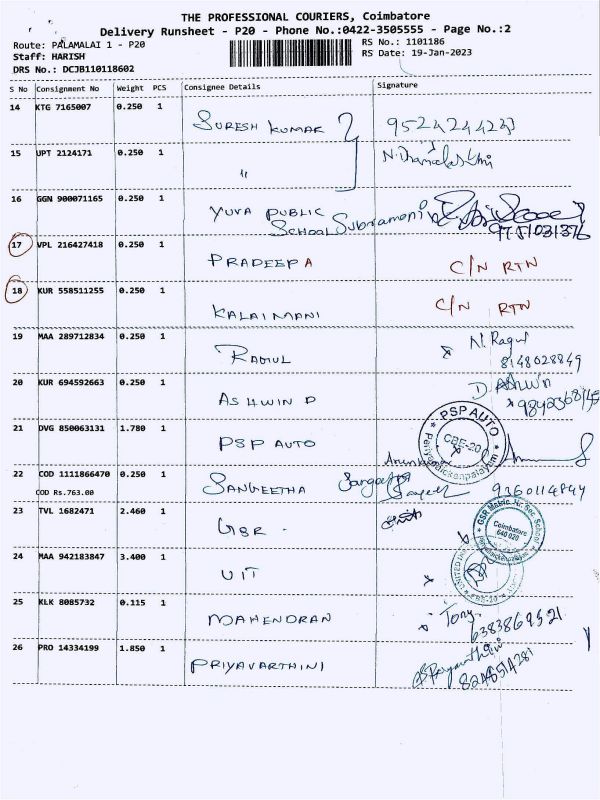 THE PROFESSIONAL COURIERS, Coimbatore
Delivery Runsheet - P20 - Phone No.:0422-3505555 - Page No.:2
Route: PALAMALAI 1 - P20
Staff: HARISH
DRS No.: DCJB110118602
RS No.: 1101186
RS Date: 19-Jan-2023
S No Consignment No Weight PCS Consignee Details Signature
14 KTG 7165007 0.250 1 SURESH KUMAR
15 UPT 2124171 0.250 1 "
16 GGN 900071165 0.250 1 YUVA PUBLIC
SCHOOL Subramoni
9751031376
17 VPL 216427418 0.250 1 PRADEEPA C/N RTN
18 KUR 558511255 0.250 1 KALAIMANI C/N RTN
19 MAA 289712834 0.250 1 RAHUL N. Ragul
8148028849
20 KUR 694592663 0.250 1 ASHWIN D D. Ashwin
21 DVG 850063131 1.780 1 PSP AUTO
PSP AUTO
CBE-20
Periyanaickenpalayam
22 COD 1111866470 0.250 1 SANGEETHA
COD Rs.763.00
23 TVL 1682471 2.460 1 GSR.
GSR Matric. Hr. Sec. School
Coimbatore
641 020
24 MAA 942183847 3.400 1 UIT
CBE-20
25 KLK 8085732 0.115 1 MAHENDRAN Tony
6383869521
26 PRO 14334199 1.850 1 PRIYAVARTHINI